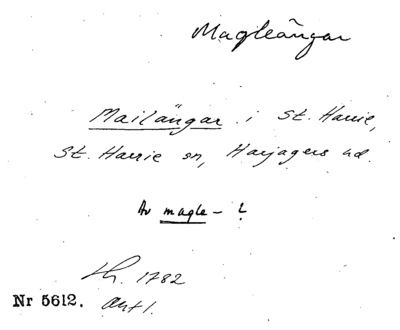 Magleängar
Mailängar i St. Harrie,
St. Harrie sn, Harjagers hd.
Av magle- ?
Lh. 1782
Nr 5612. Akt 1.